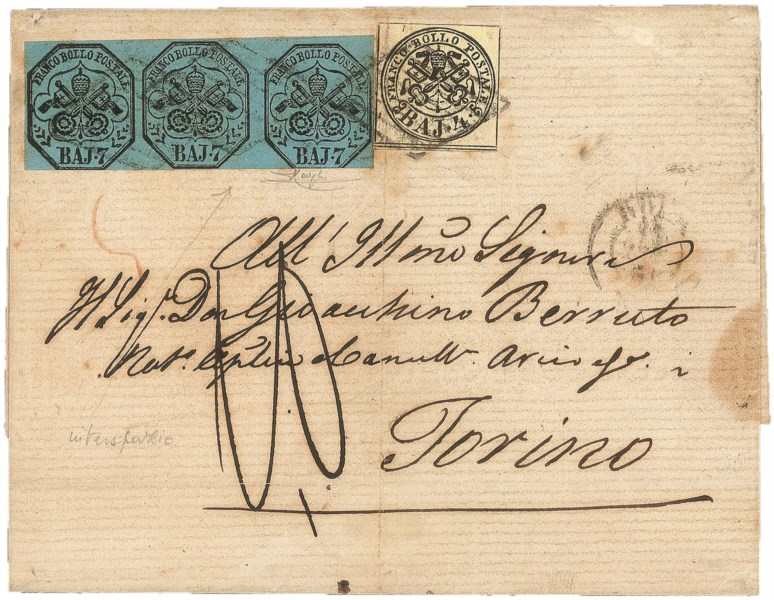 FRANCO BOLLO POSTALE
BAJ. 7
FRANCO BOLLO POSTALE
BAJ. 7
FRANCO BOLLO POSTALE
BAJ. 7
FRANCO BOLLO POSTALE
BAJ. 4
All' Illmo Signore
Il Sig. Don Gioacchino Berruto
Torino
interspazio